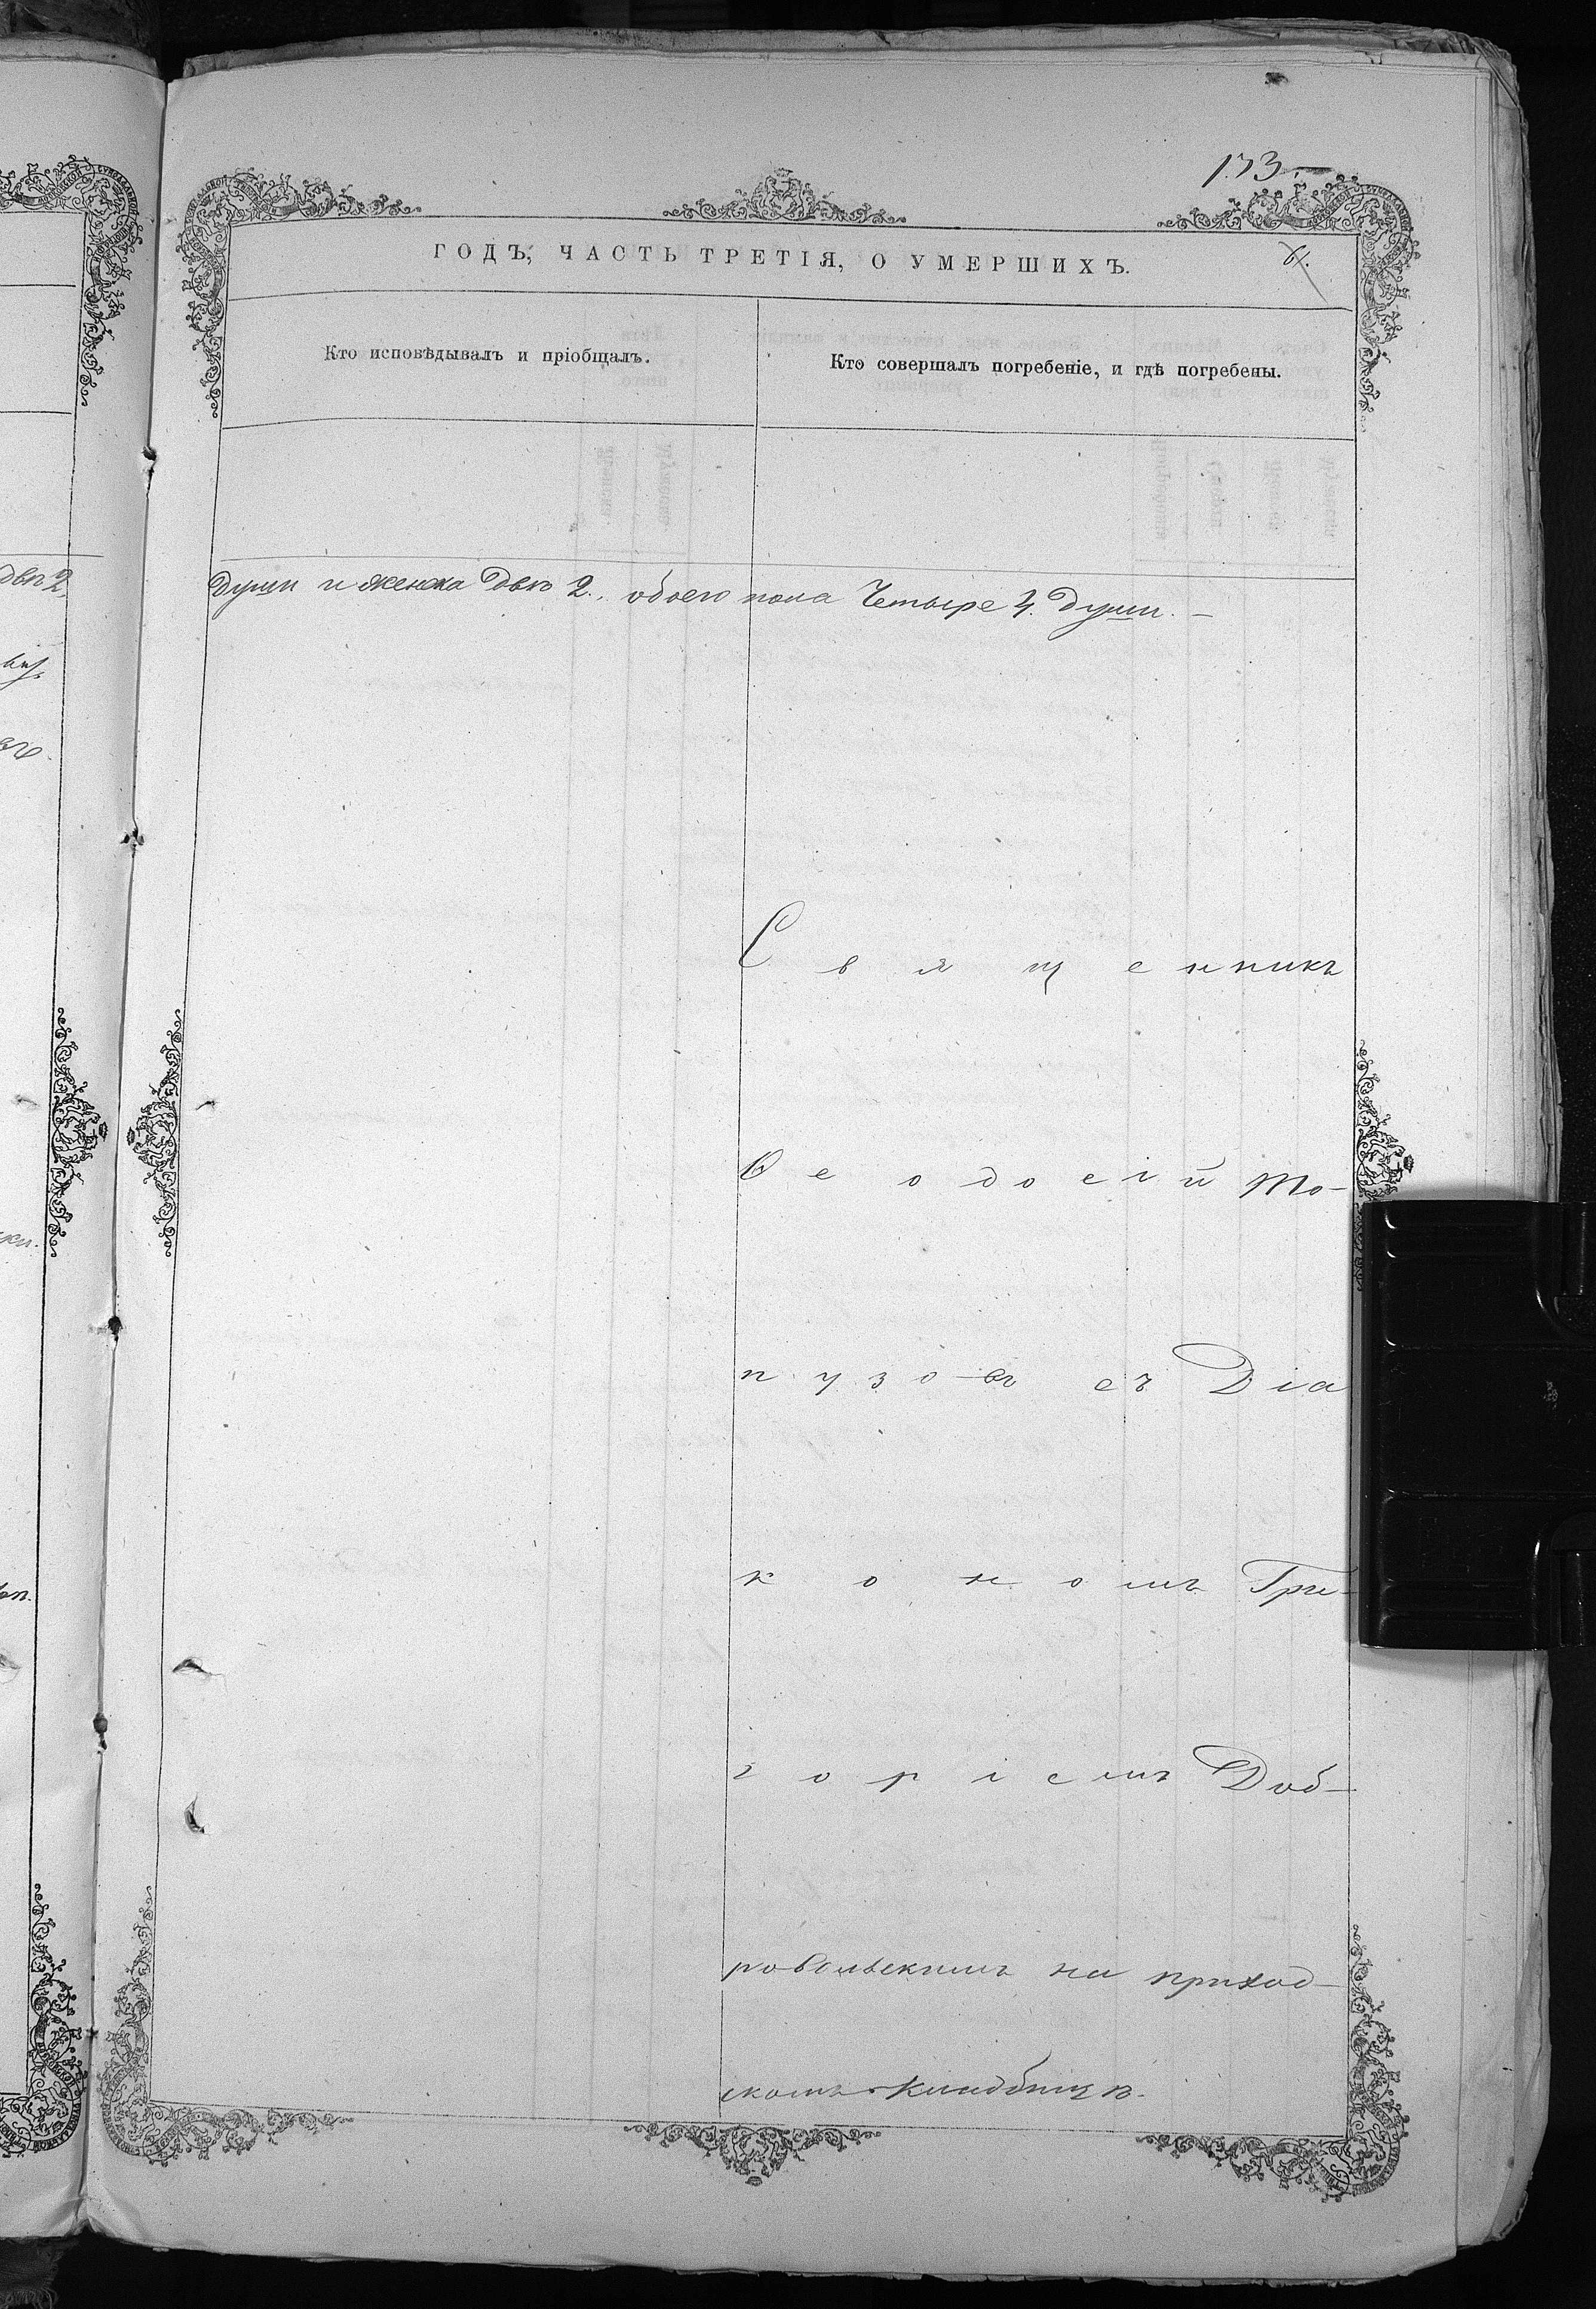 173.
ГОДЪ, ЧАСТЬ ТРЕТІЯ, О УМЕРШИХЪ.
Кто исповѣдывалъ и пріобщалъ.
Кто совершалъ погребеніе, и гдѣ погребены.
двѣ 2.
души и женска двѣ 2. обоего пола Четыре 4. души. —
Священникъ
Ѳеодосій То-
пузовъ съ Діа
кономъ Гри-
горіемъ Доб-
ровольскимъ на приход-
скомъ Кладбищѣ.